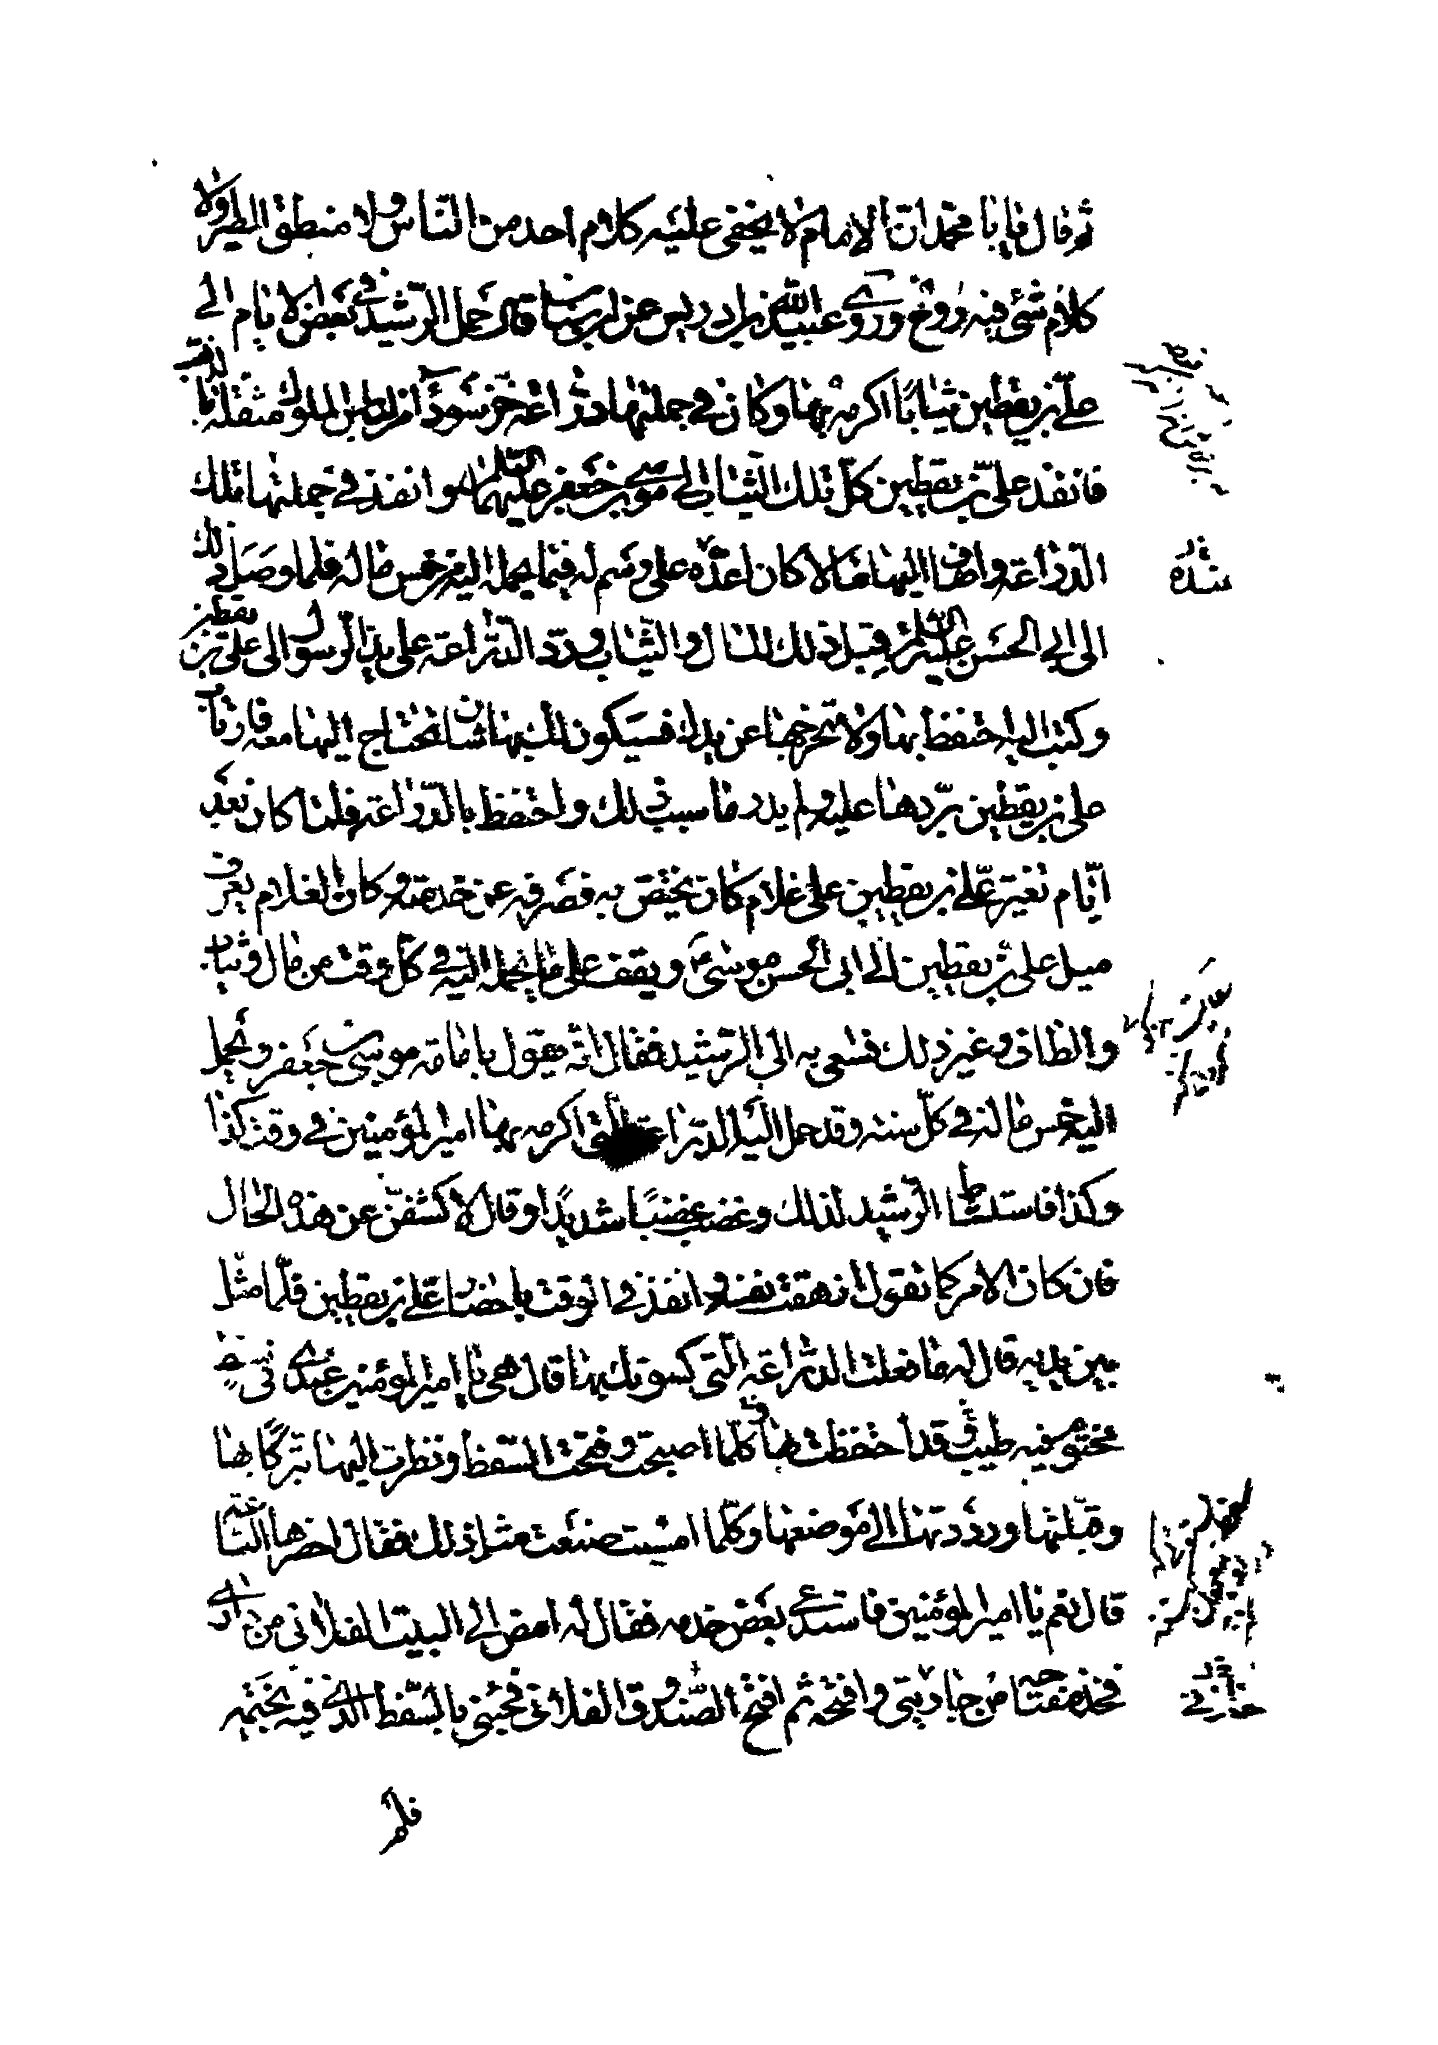 ثم قال يا با محمد ان الامام لا يخفى عليه كلام احد من الناس ولا منطق الطير ولا
كلام شئ فيه روح وروى عبد الله بن ادريس عن ابن سنان قال حمل الرشيد في بعض الايام الى
علي بن يقطين ثيابا اكرمه بها وكان في جملتها دراعة خز سوداء من لباس الملوك مثقلة بالذهب
فانفذ علي بن يقطين كل تلك الثياب الى موسى بن جعفر عليهما السلام وانفذ في جملتها تلك
الدراعة واضاف اليها مالا كان اعده على رسم له فيما يحمله اليه من خمس ماله فلما وصل ذلك
الى ابي الحسن عليه السلام قبل ذلك المال والثياب ورد الدراعة على يد الرسول الى علي بن يقطين
وكتب اليه احتفظ بها ولا تخرجها عن يدك فسيكون لك بها شان تحتاج اليها معه فارتاب
علي بن يقطين بردها عليه ولم يدر ما سبب ذلك واحتفظ بالدراعة فلما كان بعد
ايام تغير علي بن يقطين على غلام كان يختص به فصرفه عن خدمته وكان الغلام يعرف
ميل علي بن يقطين الى ابي الحسن موسى ع ويقف على ما يحمله اليه في كل وقت من مال وثياب
والطاف وغير ذلك فسعى به الى الرشيد فقال انه يقول بامامة موسى بن جعفر ويحمل
اليه خمس ماله في كل سنة وقد حمل اليه الدراعة التي اكرمه بها امير المؤمنين في وقت كذا
وكذا فاستشاط الرشيد لذلك وغضب غضبا شديدا وقال لاكشفن عن هذه الحال
فان كان الامر كما تقول ازهقت نفسه وانفذ في الوقت باحضار علي بن يقطين فلما مثل
بين يديه قال له ما فعلت الدراعة التي كسوتك بها قال هي يا امير المؤمنين عندي في سفط
مختوم فيه طيب قد احتفظت بها وكلما اصبحت وفتحت السفط ونظرت اليها تبركا بها
وقبلتها ورددتها الى موضعها وكلما امسيت صنعت مثل ذلك فقال احضرها الساعة
قال نعم يا امير المؤمنين فاستدعى بعض خدمه فقال له امض الى البيت الفلاني من داري
فخذ مفتاحه من جاريتي وافتحه ثم افتح الصندوق الفلاني فجئني بالسفط الذي فيه بختمه
فلم